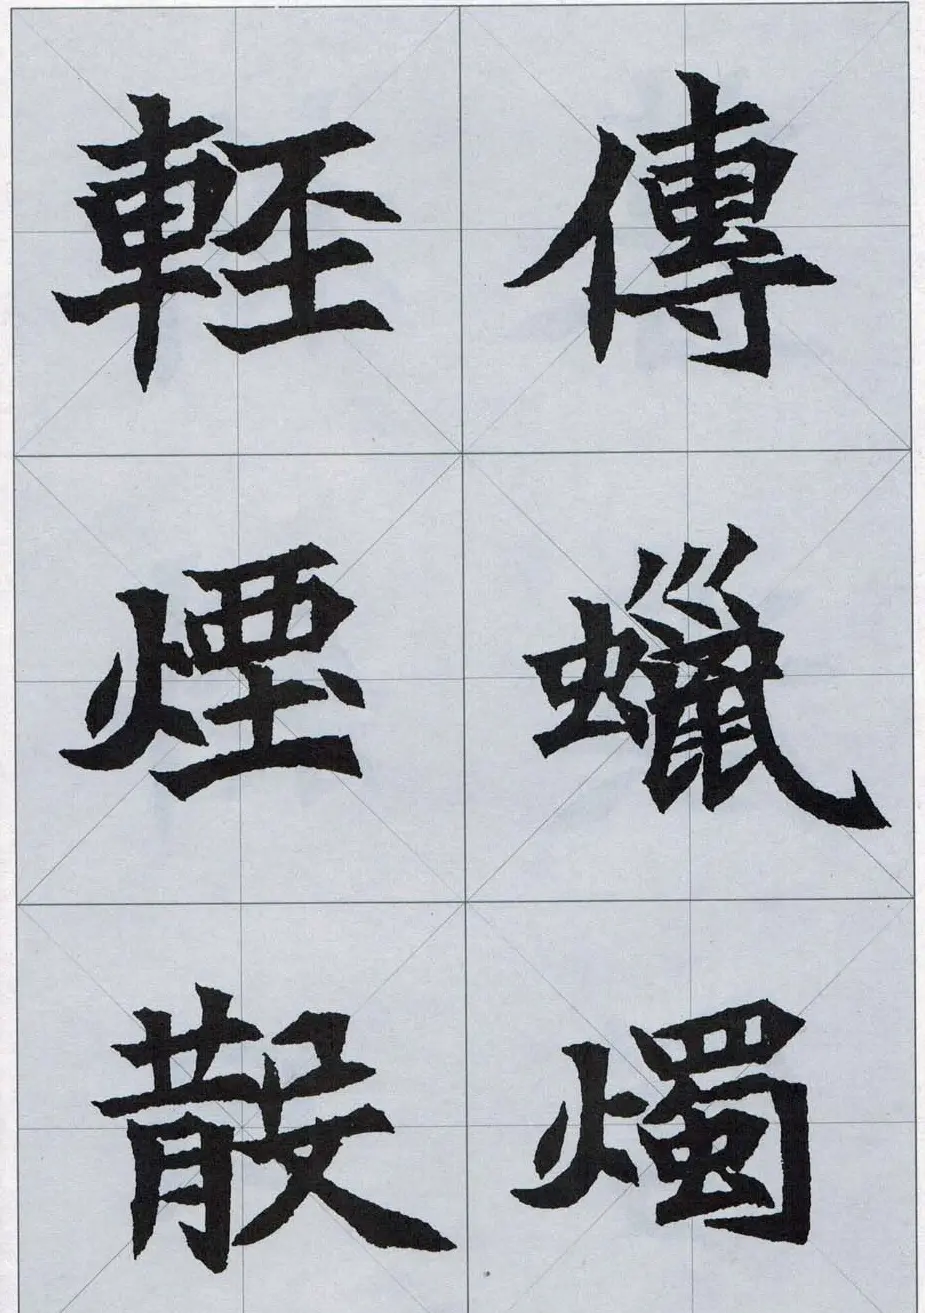 傳蠟燭
輕煙散